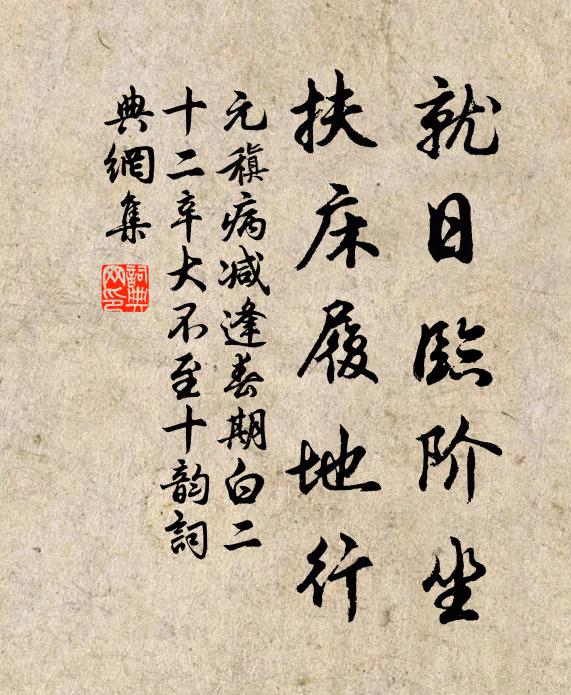 就日臨阶坐
扶床履地行
元稹病减逢春期白二
十二辛大不至十韵詞
典網集
詞典网印